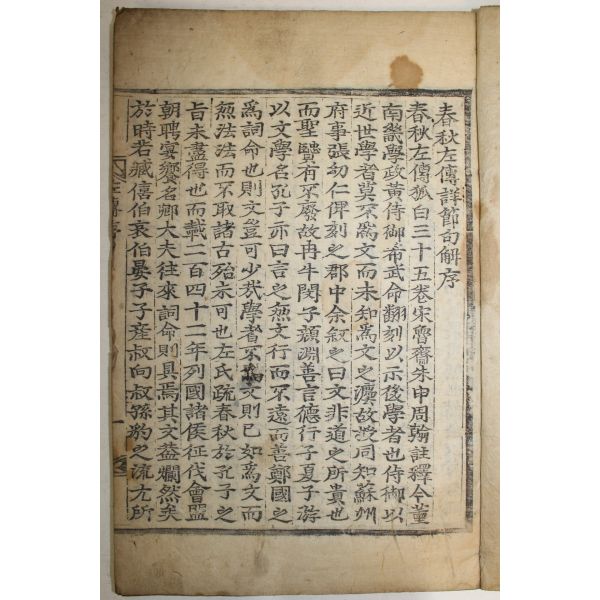 春秋左傳詳節句解序
春秋左傳狐白三十五卷宋魯齋朱申周翰註釋今董
南畿學政黃侍御希武命翻刻以示後學者也侍御以
近世學者莫不爲文而未知爲文之獘故授同知蘇州
府事張幼仁俾刻之郡中余叙之曰文非道之所貴也
而聖贒有不廢故冉牛閔子顔淵善言德行子夏子游
以文學名孔子亦曰言之無文行而不遠而善鄭國之
爲詞命也則文豈可少哉學者不爲文則已如爲文而
無法法而不取諸古殆未可也左氏疏春秋於孔子之
旨未盡得也而載二百四十二年列國諸侯征伐會盟
朝聘宴饗名卿大夫往來詞命則具焉其文葢爛然矣
於時若臧僖伯哀伯晏子子産叔向叔孫豹之流尤所
左傳序
一